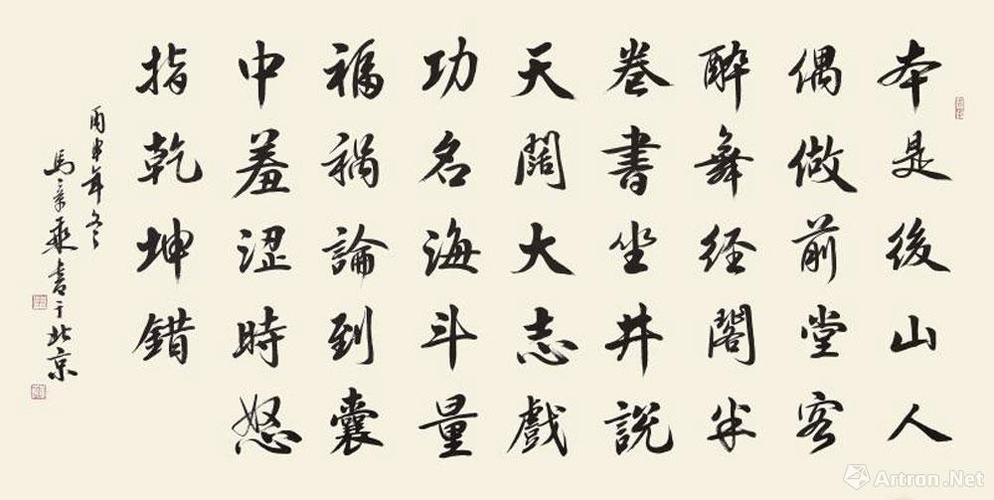 本是後山人
偶做前堂客
醉舞經閣半
卷書坐井說
天闊大志戲
功名海斗量
福禍論到囊
中羞澀時怒
指乾坤錯
丙申年冬
馬景乘書于北京
Artron.Net